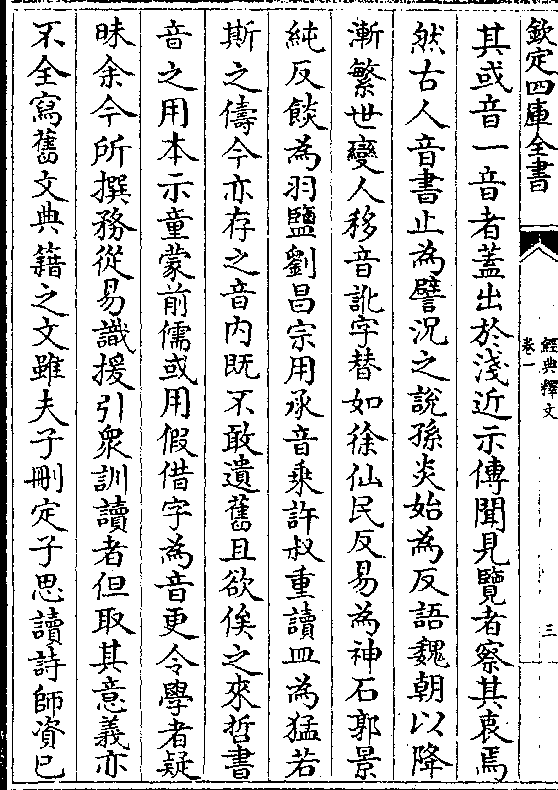 欽定四庫全書
經典釋文
卷一
三
其或音一音者蓋出於淺近示傳聞見覽者察其衷焉
然古人音書止為譬況之說孫炎始為反語魏朝以降
漸繁世變人移音訛字替如徐仙民反易為神石郭景
純反餤為羽鹽劉昌宗用承音乘許叔重讀皿為猛若
斯之儔今亦存之音內既不敢遺舊且欲俟之來哲書
音之用本示童蒙前儒或用假借字為音更令學者疑
昧余今所撰務從易識援引衆訓讀者但取其意義亦
不全寫舊文典籍之文雖夫子刪定子思讀詩師資已